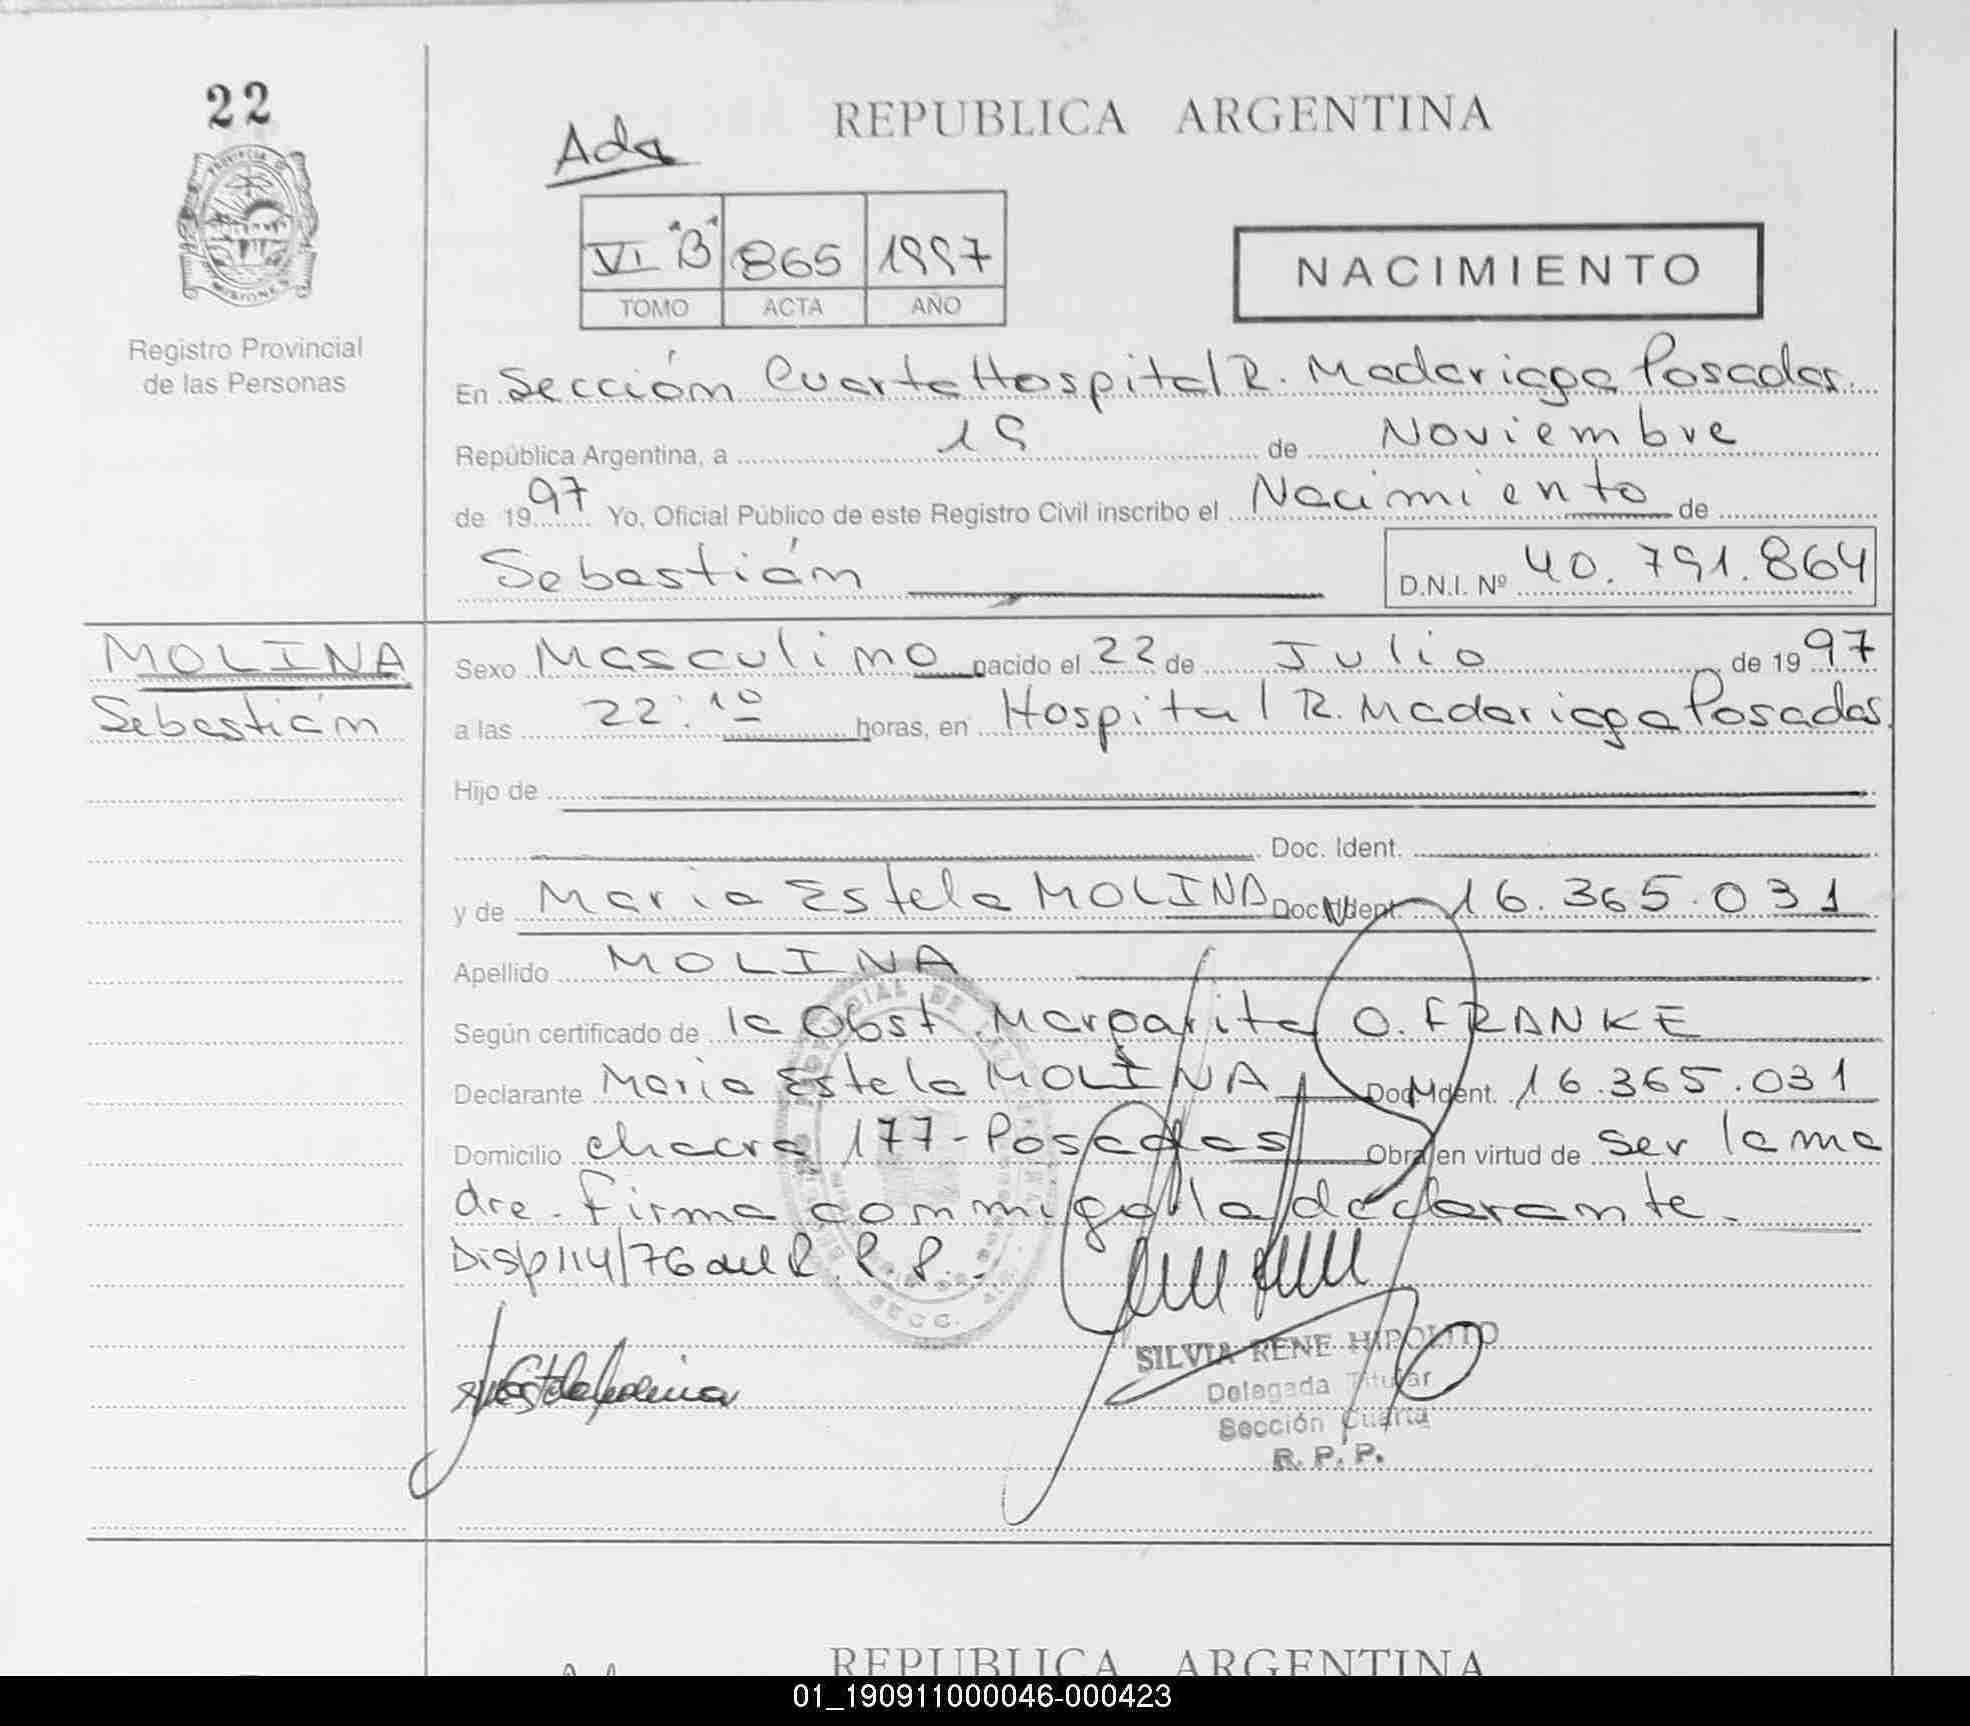 22
REPUBLICA ARGENTINA
Ada
PROVINCIA DE
MISIONES
VI "B" 865 1997
TOMO ACTA AÑO
NACIMIENTO
Registro Provincial
de las Personas
En Sección Cuarta Hospital R. Madariaga Posadas.
República Argentina, a 19 de Noviembre
de 1997 Yo, Oficial Público de este Registro Civil inscribo el Nacimiento de
Sebastián D.N.I. Nº 40.791.864
MOLINA
Sebastián
Sexo Masculino nacido el 22 de Julio de 1997
a las 22:10 horas, en Hospital R. Madariaga Posadas.
Hijo de
Doc. Ident.
y de Maria Estela MOLINA Doc. Ident. 16.365.031
Apellido MOLINA
Según certificado de la Obst Margarita O. FRANKE
Declarante Maria Estela MOLINA Doc. Ident. 16.365.031
Domicilio chacra 177 - Posadas Obra en virtud de ser la ma
dre - Firma conmigo la declarante.
Disp 114/76 del R.P.P..
SILVIA RENE HIPOLITO
Delegada Titular
Sección Cuarta
R. P. P.
REPUBLICA ARGENTINA
01_190911000046-000423